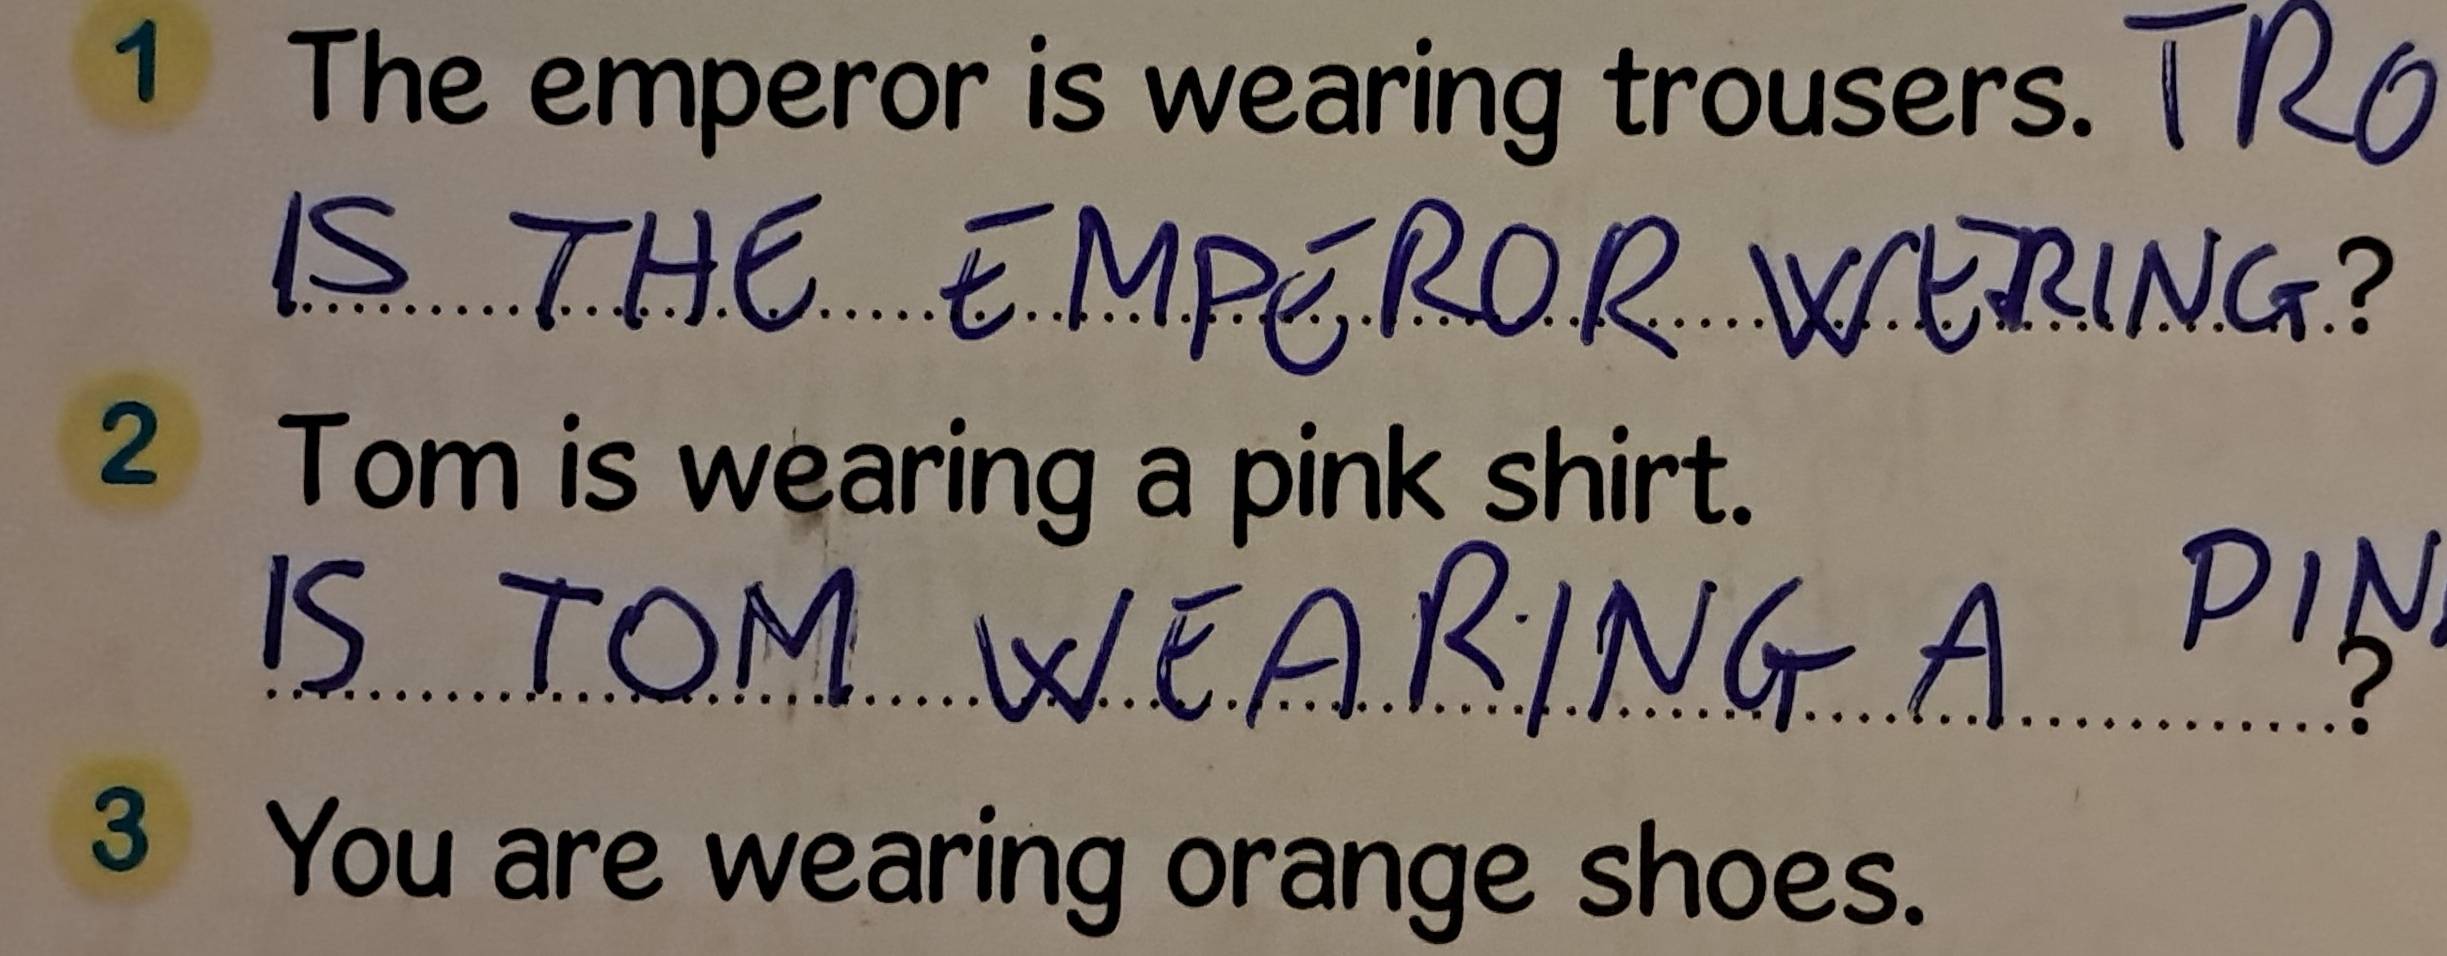 1 The emperor is wearing trousers. TRO
IS THE EMPEROR WERING?
2 Tom is wearing a pink shirt.
IS TOM WEARING A PIN
?
3 You are wearing orange shoes.